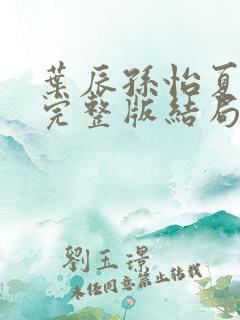 葉辰孫怡夏
完整版結局
劉玉璟
未经同意禁止转载